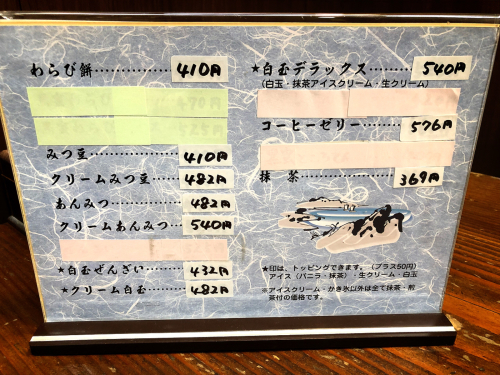 わらび餅 410円
みつ豆 410円
クリームみつ豆 482円
あんみつ 482円
クリームあんみつ 540円
★白玉ぜんざい 432円
★クリーム白玉 482円
★白玉デラックス 540円
(白玉・抹茶アイスクリーム・生クリーム)
コーヒーゼリー 576円
抹茶 369円
★印は、トッピングできます。(プラス50円)
アイス(バニラ・抹茶)・生クリーム・白玉
※アイスクリーム・かき氷以外は全て抹茶・煎
茶付の価格です。